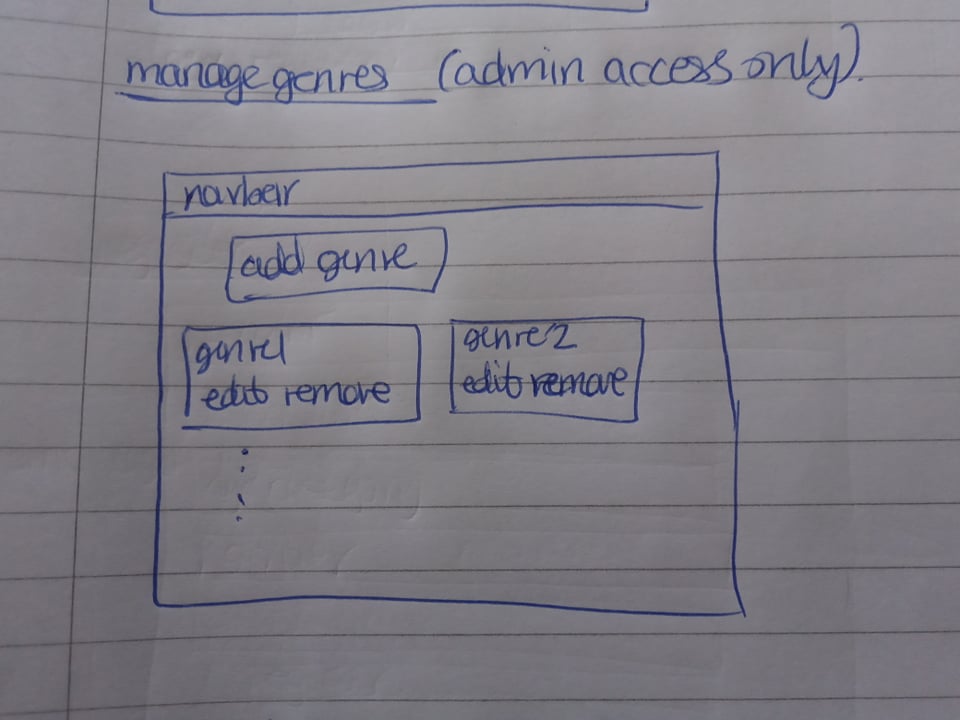 manage genres (admin access only).
navbar
add genre
genre1
edit remove
genre2
edit remove